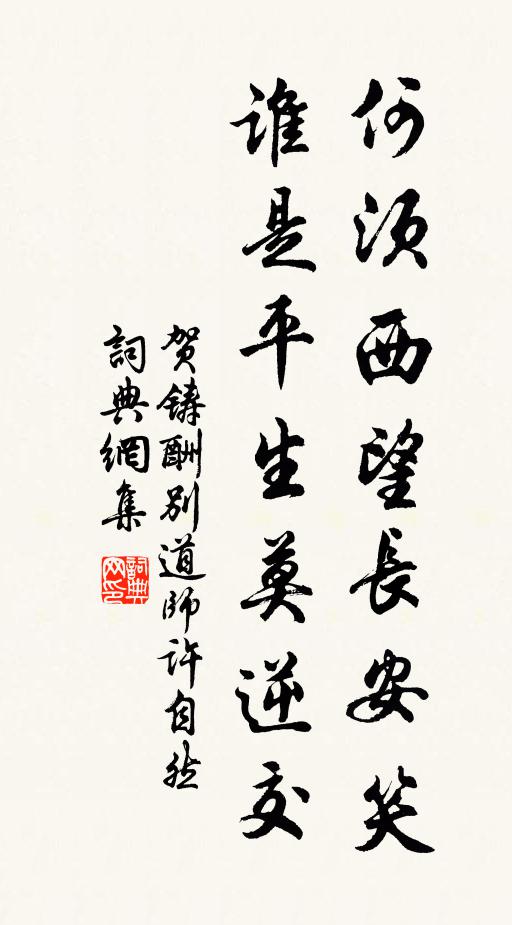 何須西望長安笑
誰是平生莫逆交
贺鑄酬别道師許自然
詞典網集
詞典网印